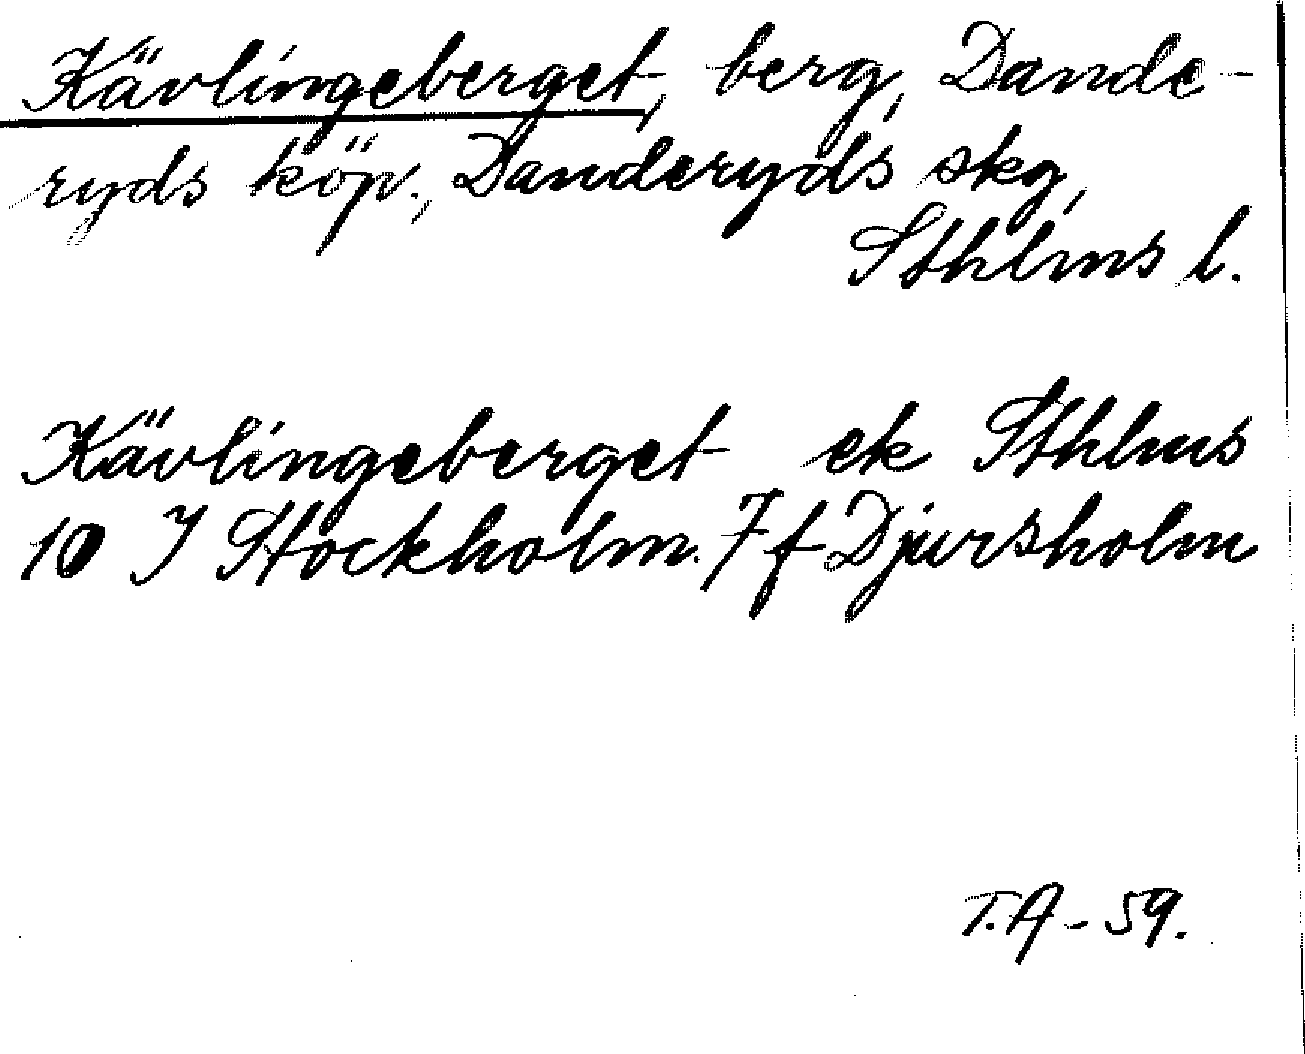 Kävlingeberget, berg, Dande-
ryds köp., Danderyds skg,
Sthlms l.
Kävlingeberget ek Sthlms
10 I Stockholm. 7 f Djursholm
T.A - 59.